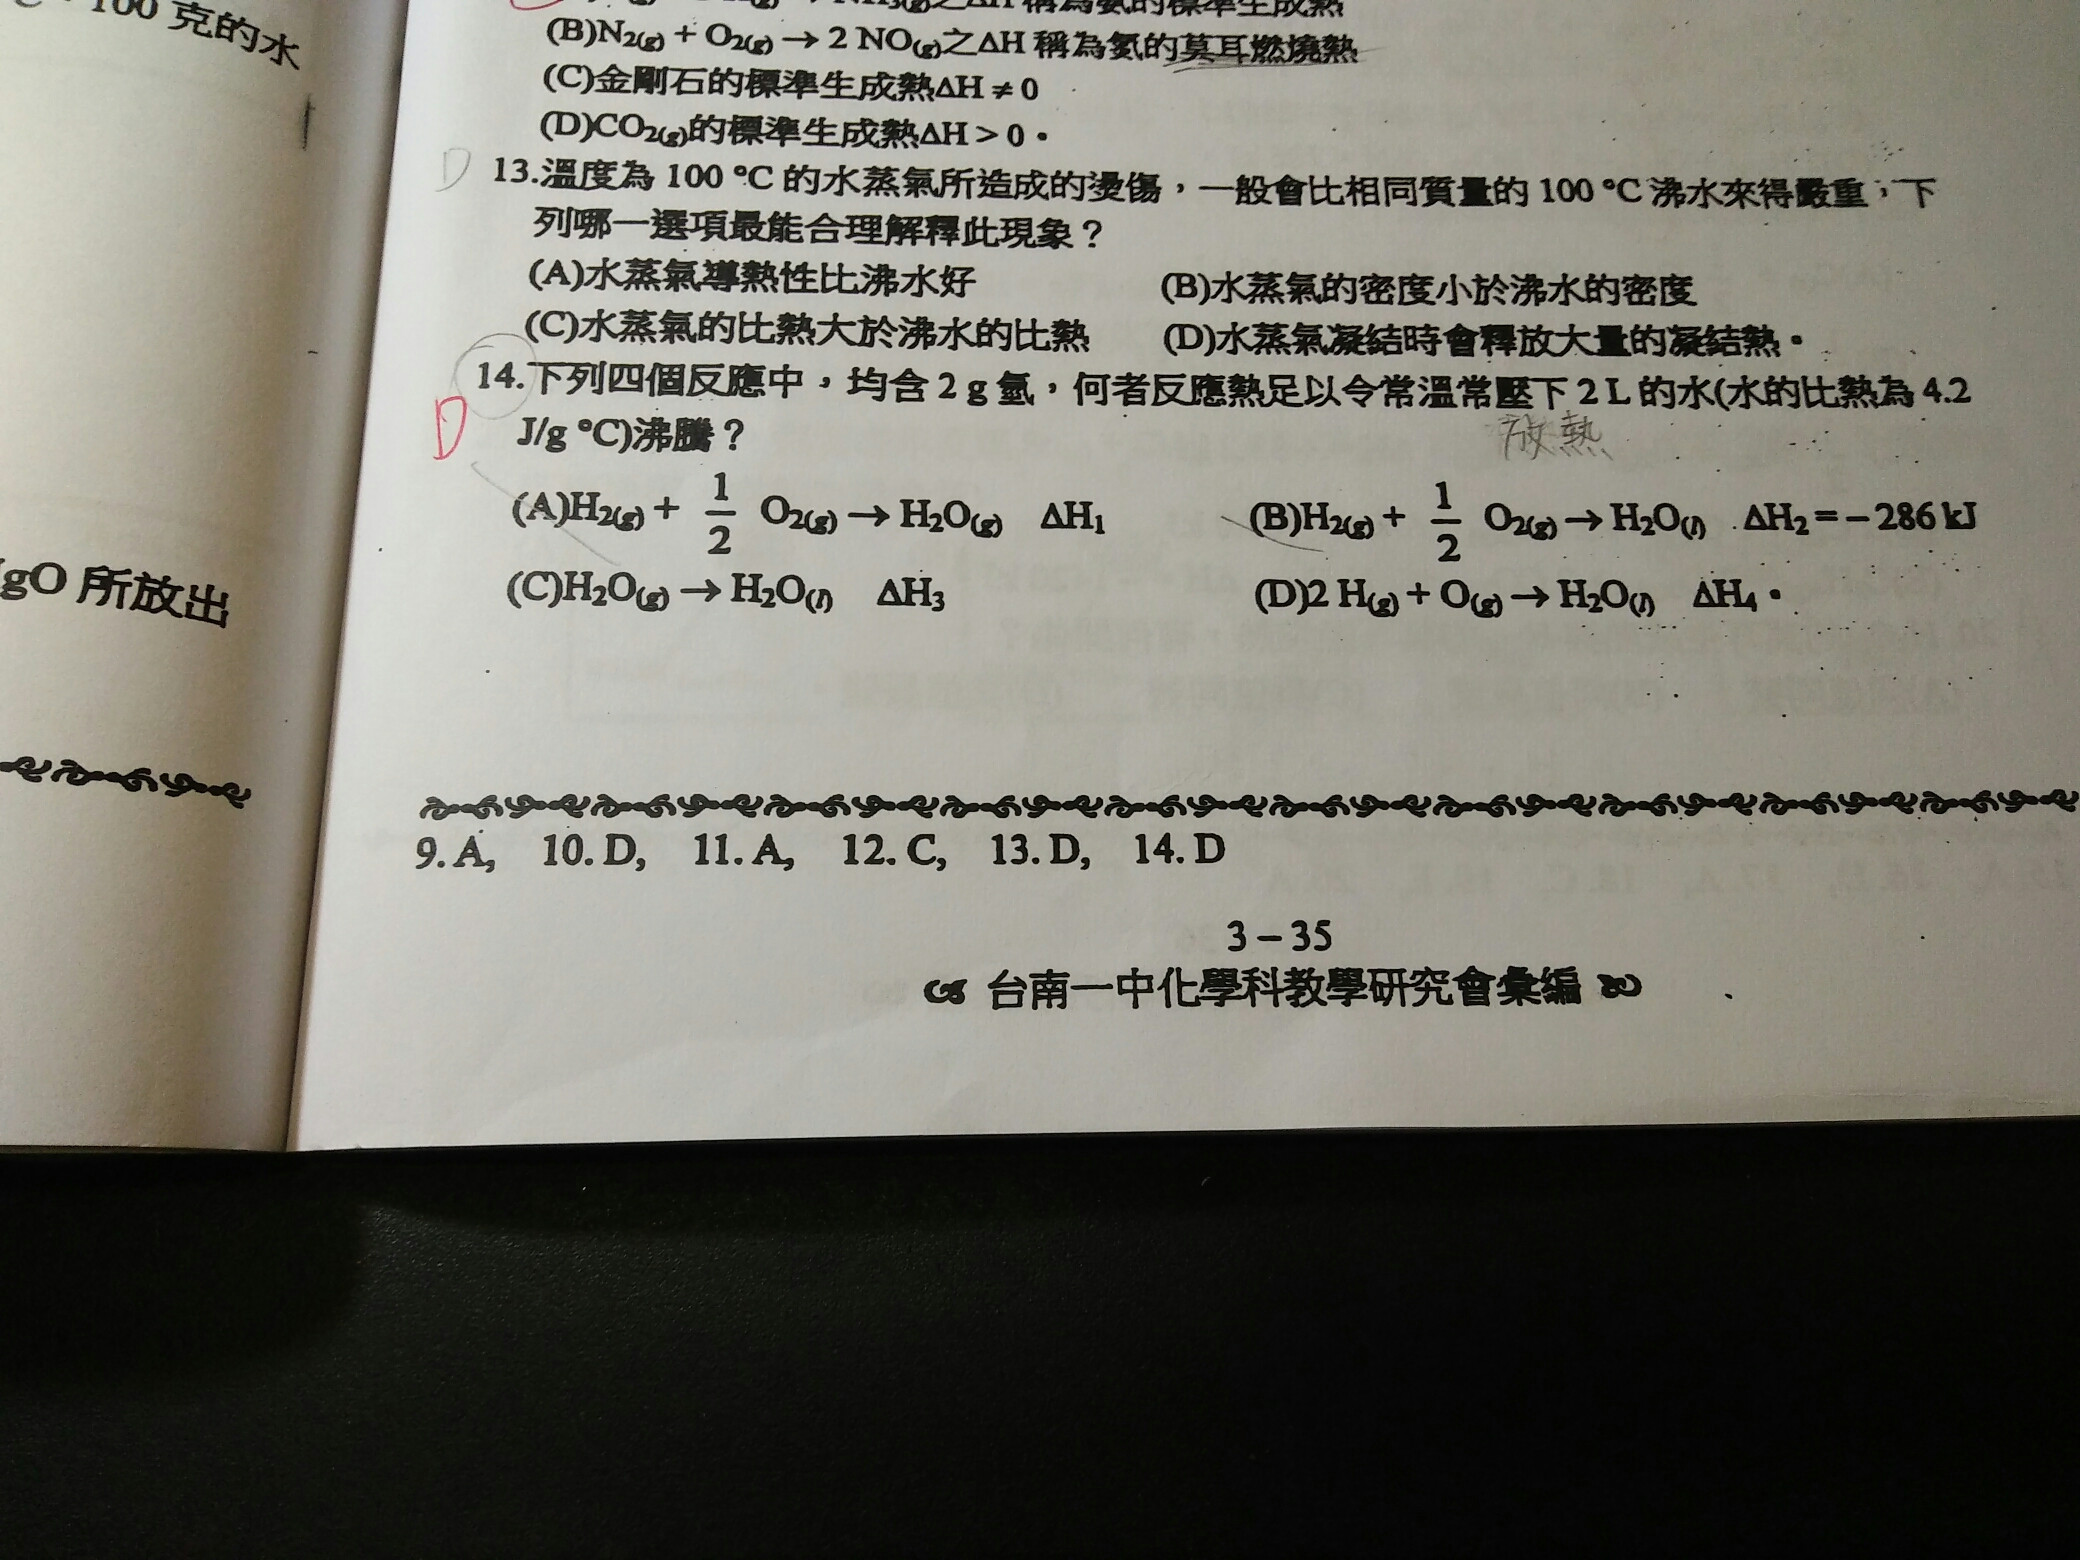 100 克的水
(B)N2(g) + O2(g) → 2 NO(g)之ΔH 稱為氮的莫耳燃燒熱
(C)金剛石的標準生成熱ΔH ≠ 0
(D)CO2(g)的標準生成熱ΔH > 0。
D 13.溫度為 100 ℃ 的水蒸氣所造成的燙傷，一般會比相同質量的 100 ℃ 沸水來得嚴重，下
列哪一選項最能合理解釋此現象？
(A)水蒸氣導熱性比沸水好 (B)水蒸氣的密度小於沸水的密度
(C)水蒸氣的比熱大於沸水的比熱 (D)水蒸氣凝結時會釋放大量的凝結熱。
14.下列四個反應中，均含 2 g 氫，何者反應熱足以令常溫常壓下 2 L 的水(水的比熱為 4.2
D J/g ℃)沸騰？ 放熱
(A)H2(g) + 1/2 O2(g) → H2O(g) ΔH1 (B)H2(g) + 1/2 O2(g) → H2O(l) ΔH2 = – 286 kJ
(C)H2O(g) → H2O(l) ΔH3 (D)2 H(g) + O(g) → H2O(l) ΔH4。
gO 所放出
9. A, 10. D, 11. A, 12. C, 13. D, 14. D
3 – 35
台南一中化學科教學研究會彙編